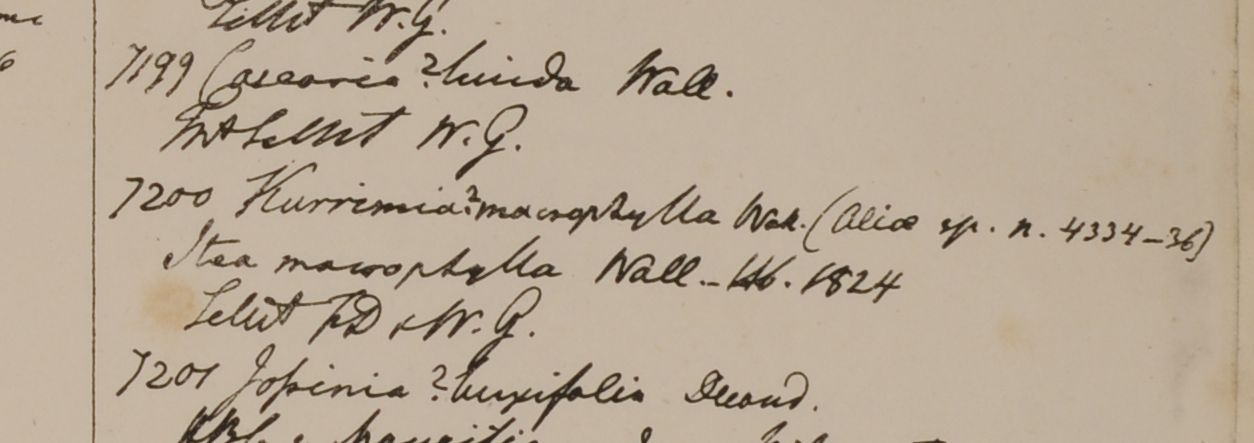 Sillet W.G.
7199 Casearia? lucida Wall.
Mt Sillet W.G.
7200 Kurrimia? macrophylla Wall. (Aliae sp. n. 4334-36)
Itea macrophylla Wall. Hb. 1824
Sillet FD & W.G.
7201 Jossinia? buxifolia Decand.